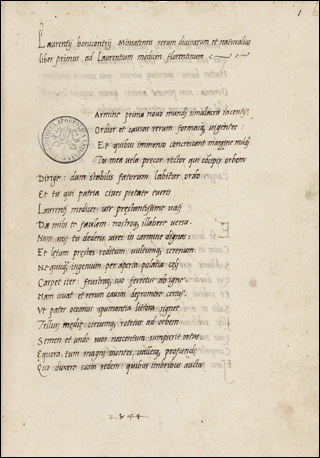 1
Laurentij bonicontrij Miniatensis rerum diuinarum et naturaliu
liber primus ad Laurentium medicen florentinum
Armine prima nouo mundj simulacra iacentis
Ordior et causas rerum formasq; uigentes
Et quibus immensus concrescant margine mundj
Tu mea uela precor rector qui concipis orbem
Dirige: dum stabilis fatorum labitur ordo
Et tu qui patriæ ciues pietate tueris
Laurentj medices, uir prestantissime uatj
Da mihi te facilem: nostroq; illabere uersu
Nam mihj tu dederis uires in carmine dignas
Et letum prestes reditum, uultumq; serenum
Ne quicq; ingenium per aperta palatia celj
Carpet iter: frustraq; suo ferretur ab igne
Nam iuuat et rerum causas depromere certas
Vt pater oceanus spumantia littora signet
Tellus medio circumq; rotetur ad orbem
Semen et undo suos nascentum sumpserit ortus
Equora tum magnj montes, uallesq; profunde
Quo duxere suam sedem: quibus imbribus aucta
2844